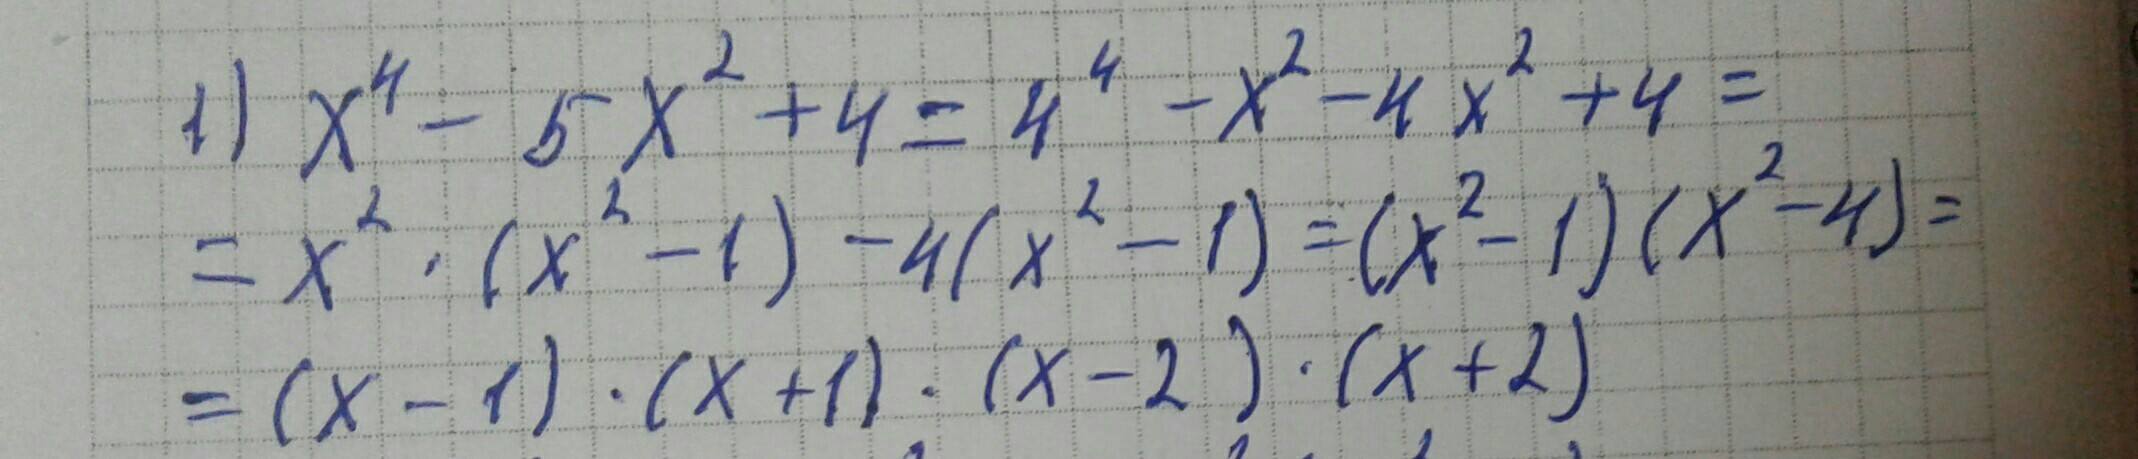 1) x⁴ - 5x² + 4 = 4⁴ - x² - 4x² + 4 =
= x² · (x² - 1) - 4(x² - 1) = (x² - 1)(x² - 4) =
= (x - 1) · (x + 1) · (x - 2) · (x + 2)